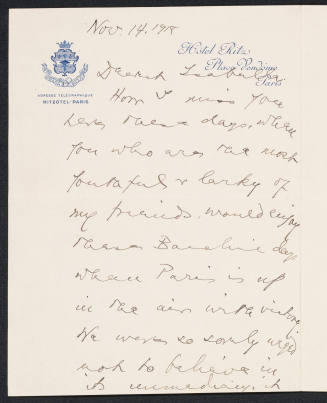 Nov. 14. 1918
Hotel Ritz
Place Vendôme
Paris
ADRESSE TÉLÉGRAPHIQUE
RITZOTEL-PARIS
Dearest Isabella
How I miss you
here these days, when
you who are the most
youthful & larky of
my friends, would enjoy
these days
when Paris is up
in the air with victory
We were so urged
not to believe in
its immediacy, it